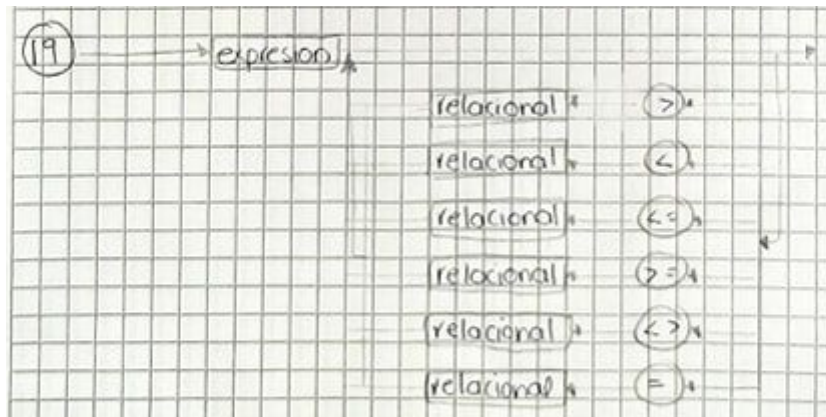 19 expresion
relacional >
relacional <
relacional <=
relacional >=
relacional <>
relacional =